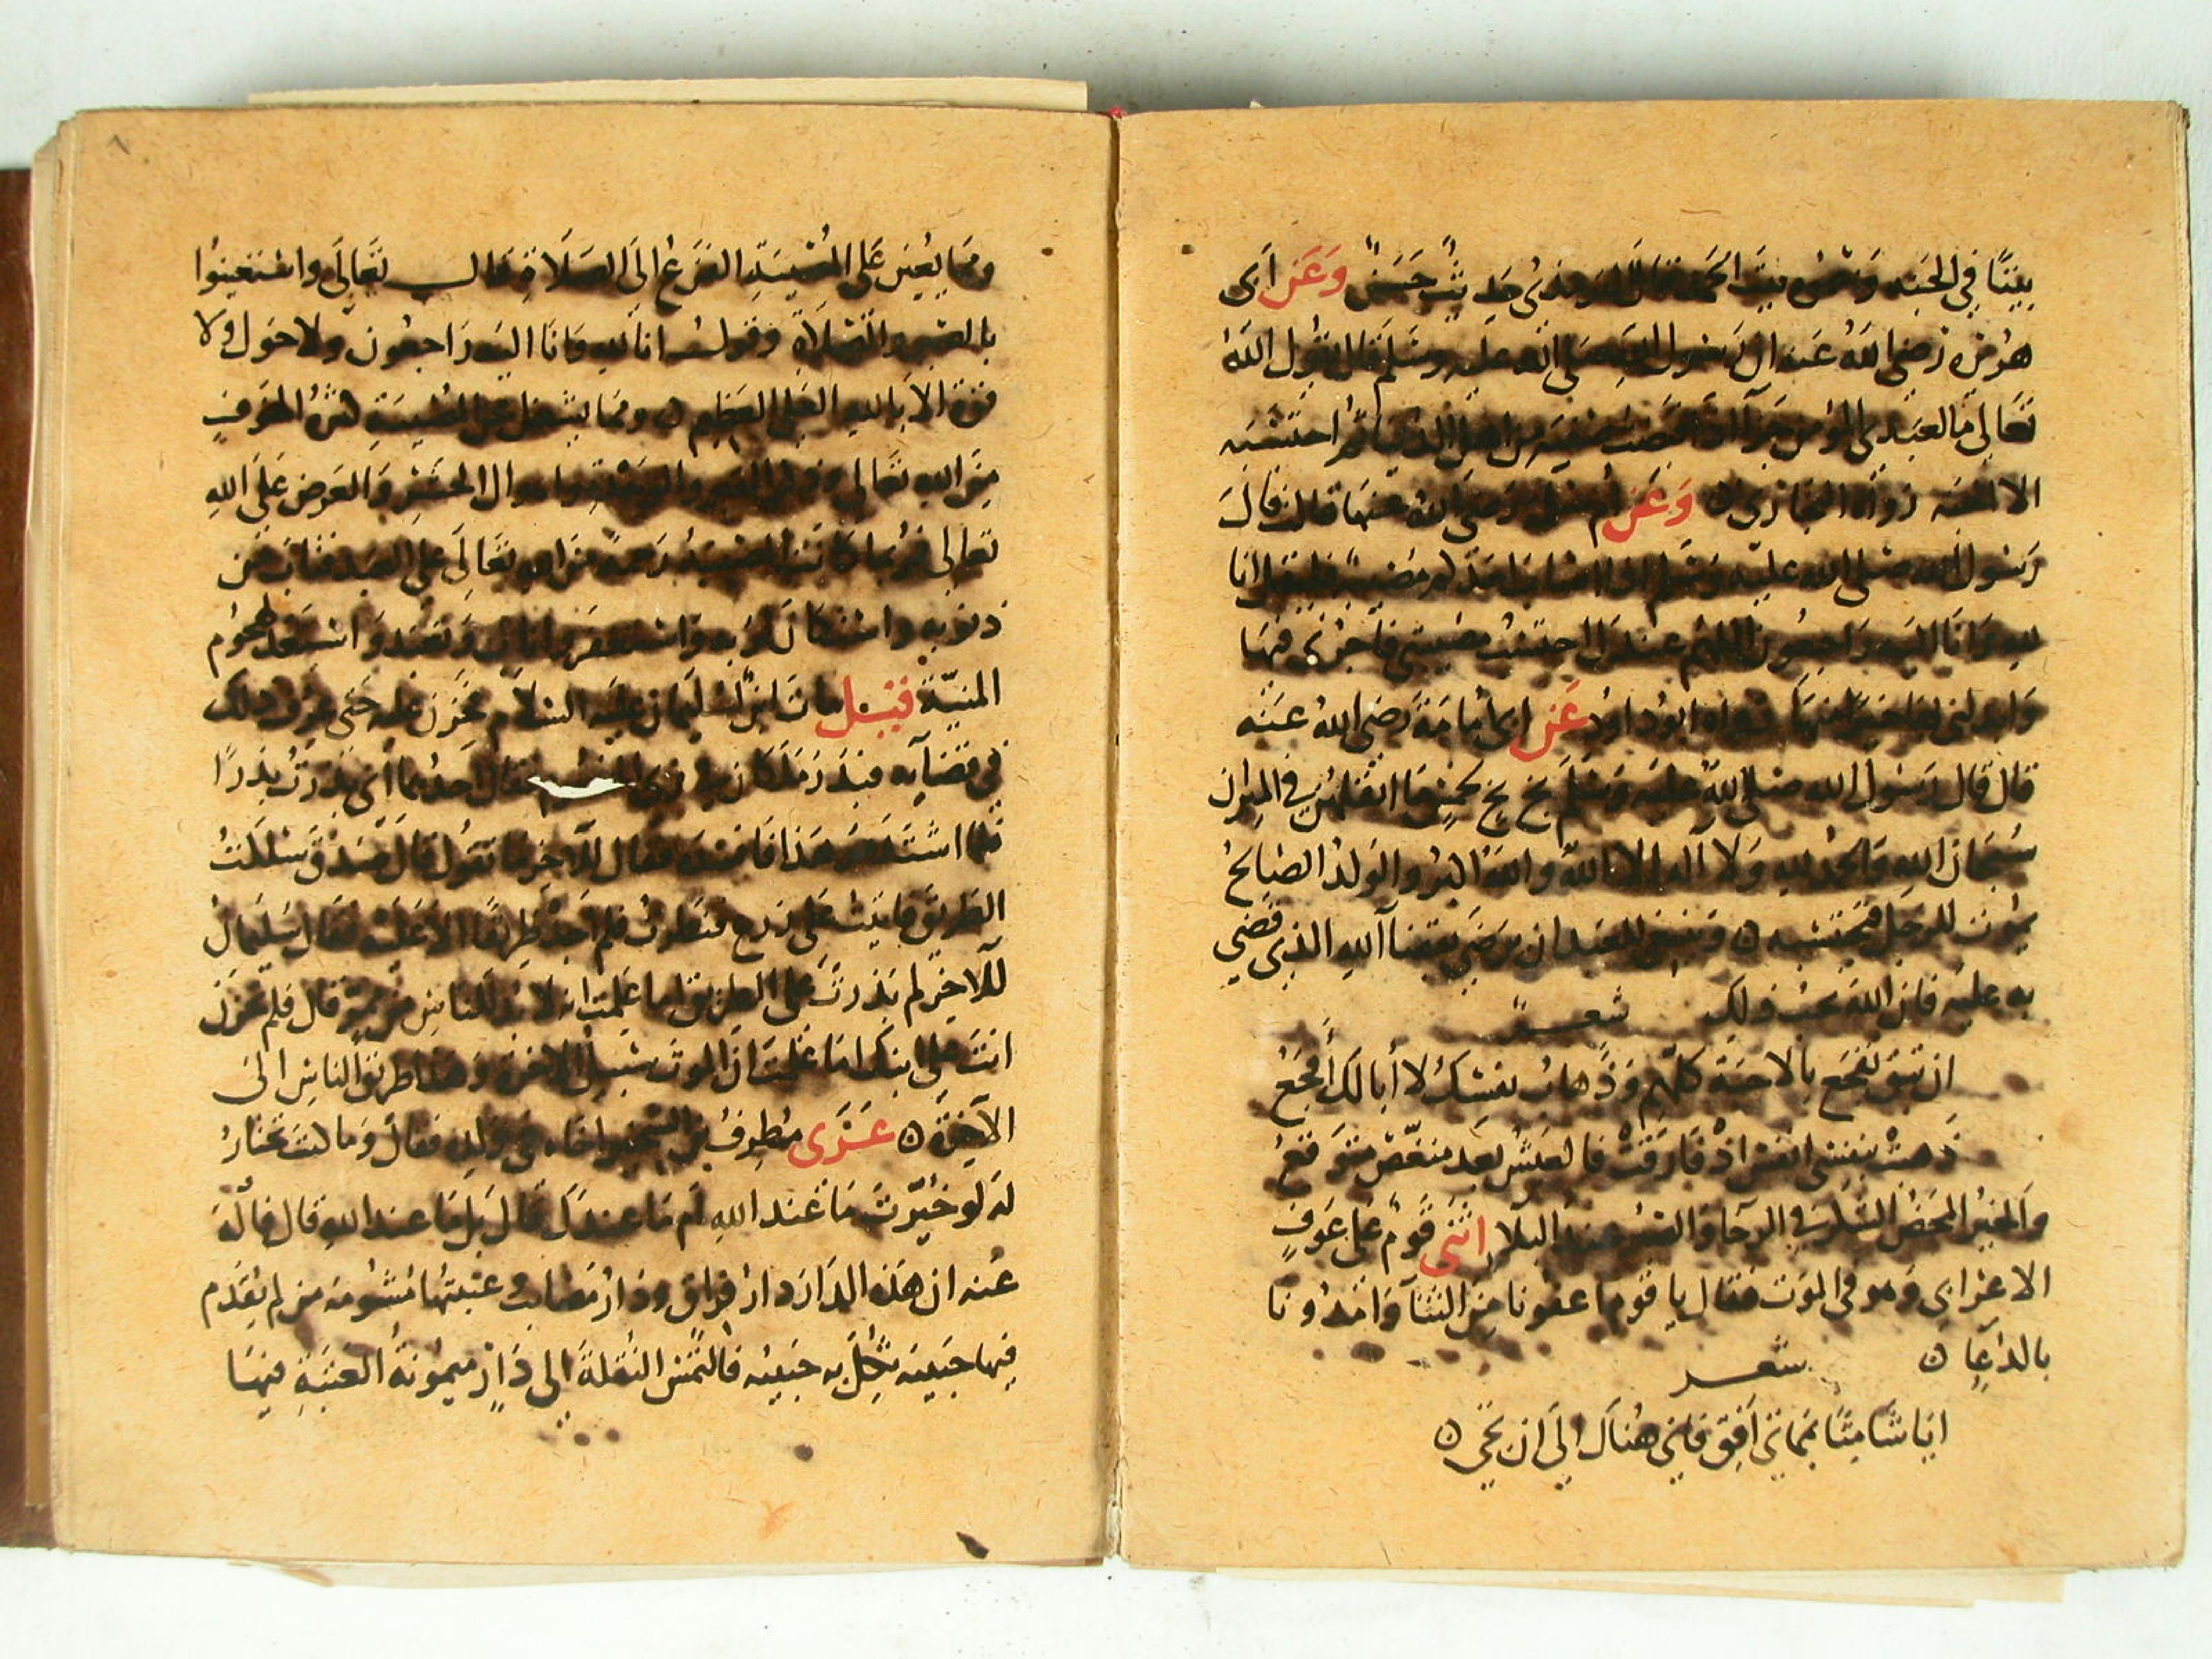 بيتًا في الجنه وسموه بيت الحمد قال الترمذي حديث حسن وعن ابى
هريره رضي الله عنه ان رسول الله صلى الله عليه وسلم قال يقول الله
تعالى ما لعبدى المؤمن جزآ اذا قبضت صفيه من اهل الدنيا ثم احتسبه
الا الجنه رواه البخارى وعن ام سلمة رضى الله عنها قالت قال
رسول الله صلى الله عليه وسلم اذا اصاب احدكم مصيبة فليقل انا
لله وانا اليه راجعون اللهم عندك احتسبت مصيبتي فاجرنى فيها
وابدلنى بها خيرًا منها رواه ابو داود عن ابى امامة رضى الله عنه
قال قال رسول الله صلى الله عليه وسلم بخ بخ بخمس ما اثقلهن في الميزان
سبحان الله والحمد لله ولا آله الا الله والله اكبر والولد الصالح
يموت للرجل فيحتسبه وينبغي للعبد ان يرضى بقضآ الله الذي قضى
به عليه فان الله يحب ذلك شعر
ان تبق تفجع بالاحبة كلهم وذهاب نفسك لا أبا لك أفجع
ذهبت بنفسي انفس اذ فارقت فالعيش بعد منغص متوقع
والخير المحض الشكر في الرخا والصبر عند البلا اثنى قوم على عوف
الاعرابي وهو في الموت فقال يا قوم اعفونا من الثنآ وامدونا
بالدعآ
شعر
ايا شامتًا بمماتي افق فاني هناك الى ان تجي
٨
ومما يعين على المصيبة الفزع الى الصلاة قال تعالى واستعينوا
بالصبر والصلاة وقول انا لله وانا اليه راجعون ولا حول ولا
قوة الا بالله العلي العظيم ومما يشغل عن المصيبة كثرة الخوف
من الله تعالى وذكر القبر واهوال الحشر والعرض على الله
تعالى فربما كانت المصيبة رحمة من الله تعالى على العبد فتاب من
ذنوبه واستكان لربه واستغفر واناب وتعبد واستعد لهجوم
المنية قيل مات ابن لسليمان عليه السلام فحزن عليه حتى عرف ذلك
في قضآيه فقال احدهما انى بذرت بذرًا
فلما اشتد مر هذا فافسده فقال للآخر ما تقول قال صدق سلكت
الطريق فاتيت على زرع فنظرت فلم اجد طريقًا الا عليه فقال سليمان
للآخر لم بذرت على الطريق اما علمت انه لابد للناس من ممر قال فلم تحزن
انت على ابنك اما علمت ان الموت سبيل الاخرة وهذا طريق الناس الى
الآخرة عزى مطرف بن الشخير اخاه في ولده فقال وما كنت تختار
له لو خيرت ما عند الله ام ما عندك قال بل ما عند الله قال فاله
عنه ان هذه الدار دار فراق ودار مصايب عتبتها مشومه من لم يقدم
فيها حبيبه فالتمس النقلة الى دار ميمونة العتبة فيها